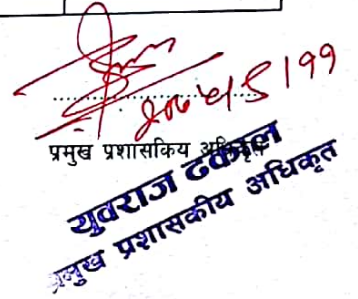 प्रमुख प्रशासकिय अधिकृत
युवराज ढकाल
प्रमुख प्रशासकीय अधिकृत